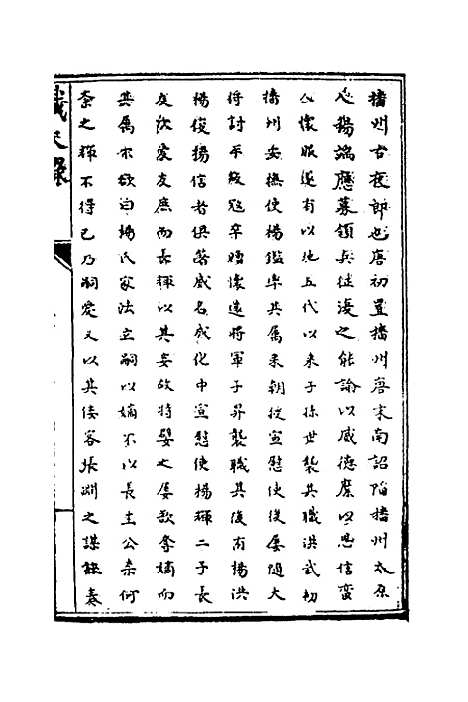 播州古夜郎也唐初置播州唐末南詔陷播州太原
人楊端應募領兵征復之能諭以威德縻以恩信蠻
人懷服遂有以地五代以来子孫世襲其職洪武初
播州安撫使楊鑑率其属来朝授宣慰使後屢随大
将討平叛寇卒贈懷遠将軍子昇襲職其後有楊洪
楊俊楊信者俱著威名成化中宣慰使楊輝二子長
友次愛友庶而長輝以其妾故特嬖之屢欲奪嫡而
其属不欲曰楊氏家法立嗣以嫡不以長主公柰何
柰之輝不得已乃嗣愛又以其俵客張渊之謀疏奏